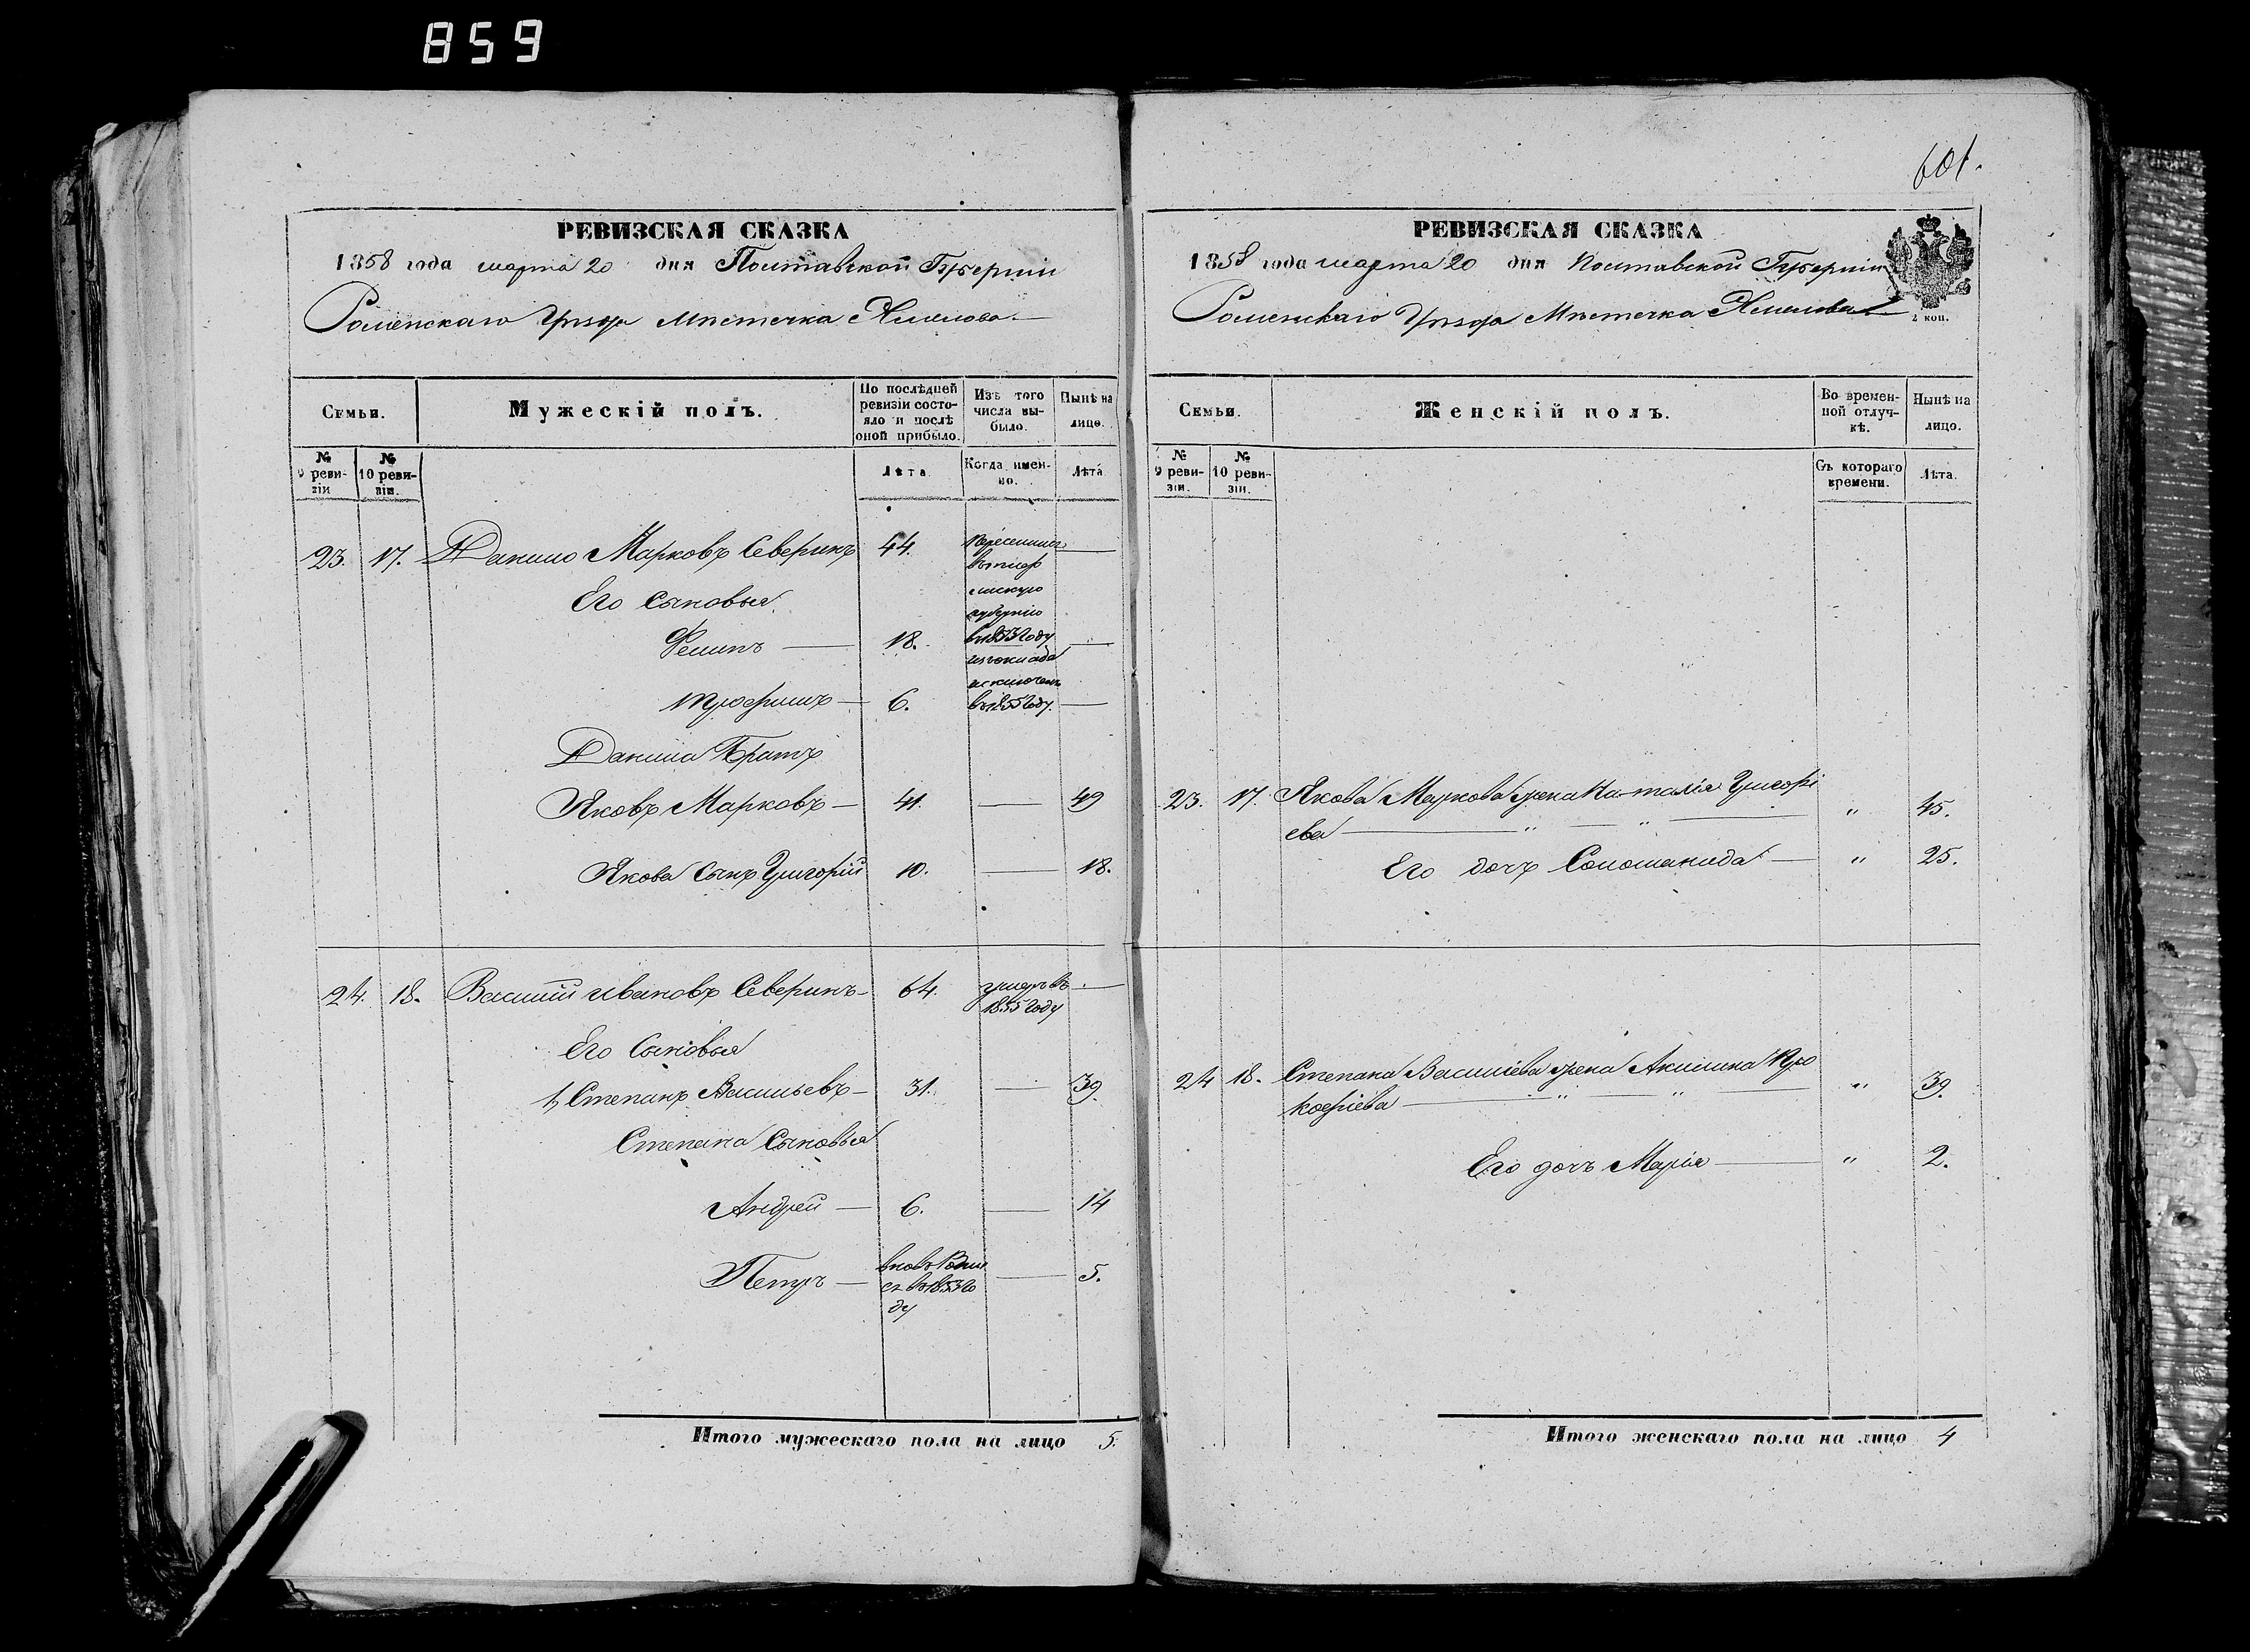 859
РЕВИЗСКАЯ СКАЗКА
1858 года марта 20 дня Полтавской Губерніи
Роменскаго Уѣзда Мѣстечка Хмелова
Семьи.
Мужескій полъ.
По послѣдней ревизіи состояло и послѣ оной прибыло.
Изъ того числа выбыло.
Нынѣ на лицо.
№ 9 ревизіи
№ 10 ревизіи.
Лѣта
Когда именно.
Лѣта
23. 17. Данило Марковъ Северинъ 44.
Его Сыновья
Филипъ — 18. —
Трофимъ — 6. —
въ 1853 году
изъ оклада
исключенъ
въ 1855 году.
Данила Братъ
Яковъ Марковъ — 41. — 49
Якова Сынъ Григорій 10. — 18.
24. 18. Василій Ивановъ Северинъ — 64. умеръ въ —
1855 году
Его Сыновья
1, Степанъ Васильевъ — 31. — 39.
Степана Сыновья
Андрей — 6. — 14
Петръ — вновь родил — 5.
ся въ 1853 го
ду
Итого мужескаго пола на лицо 5.
601.
РЕВИЗСКАЯ СКАЗКА
1858 года марта 20 дня Полтавской Губерніи
Роменскаго Уѣзда Мѣстечка Хмелова
2 коп.
Семьи.
Женскій полъ.
Во временной отлучкѣ.
Нынѣ на лицо.
№ 9 ревизіи.
№ 10 ревизіи.
Съ котораго времени.
Лѣта.
23. 17. Якова Маркова жена Наталія Григорі
ева — " — " — " 45.
Его дочь Соломанида — " 25.
24 18. Степана Василіева жена Акилина Про
кофіева — " — " — " 39.
Его дочь Марія — " 2.
Итого женскаго пола на лицо 4